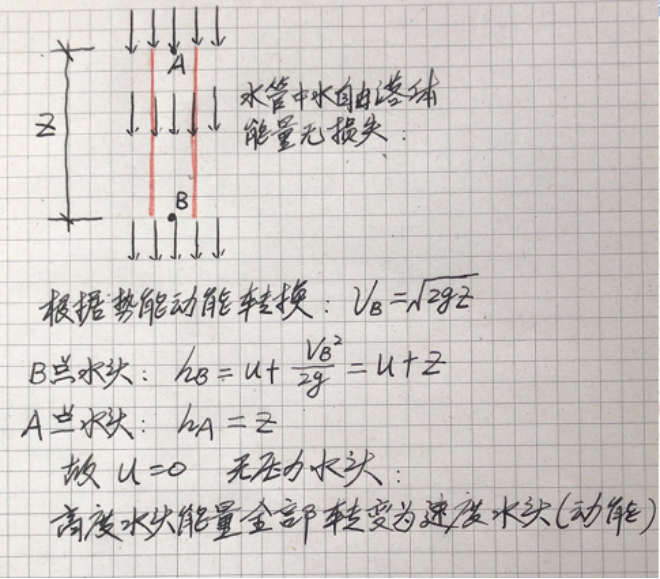 A
Z
水管中水自由落体
能量无损失:
B
根据势能动能转换: V_B=√2gz
B点水头: h_B = u + V_B²/2g = u+z
A点水头: h_A = z
故 u=0 无压力水头:
高度水头能量全部转变为速度水头(动能)